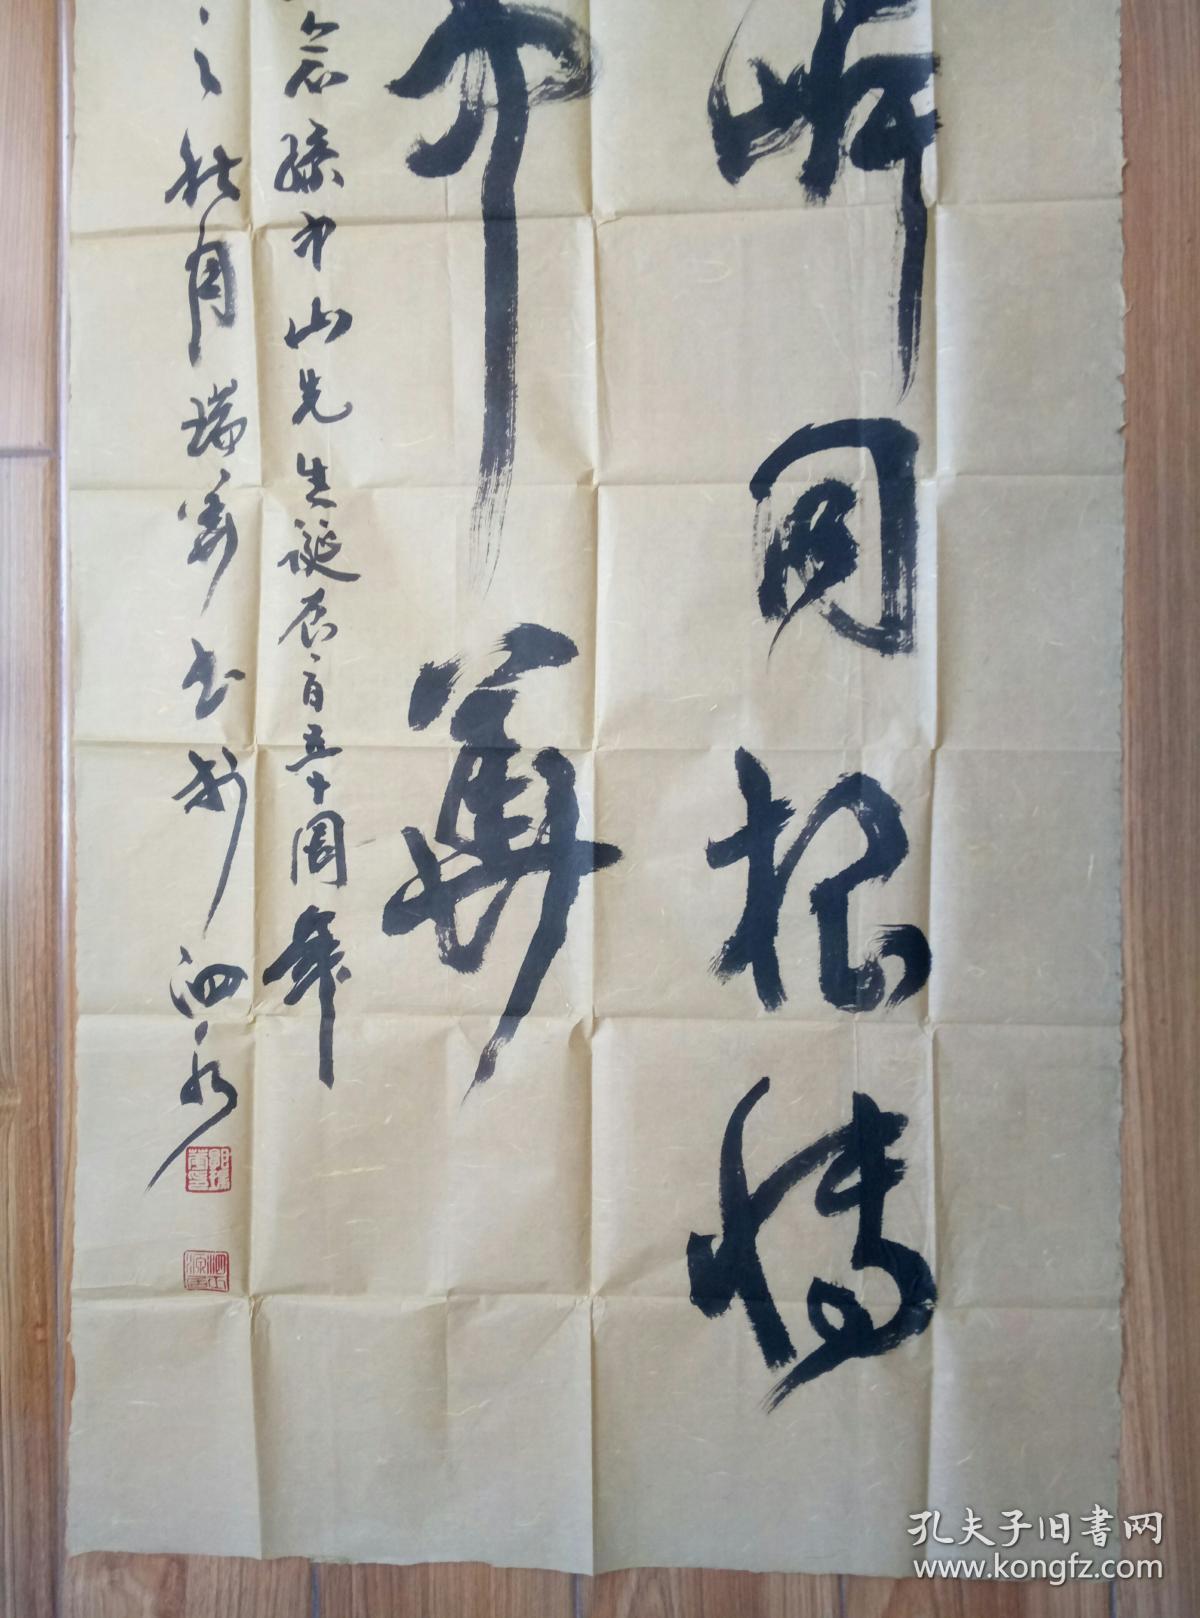 岸同根情
中华
念孙中山先生诞辰一百五十周年
之秋月瑞华书于泗水
孔夫子旧书网
www.kongfz.com